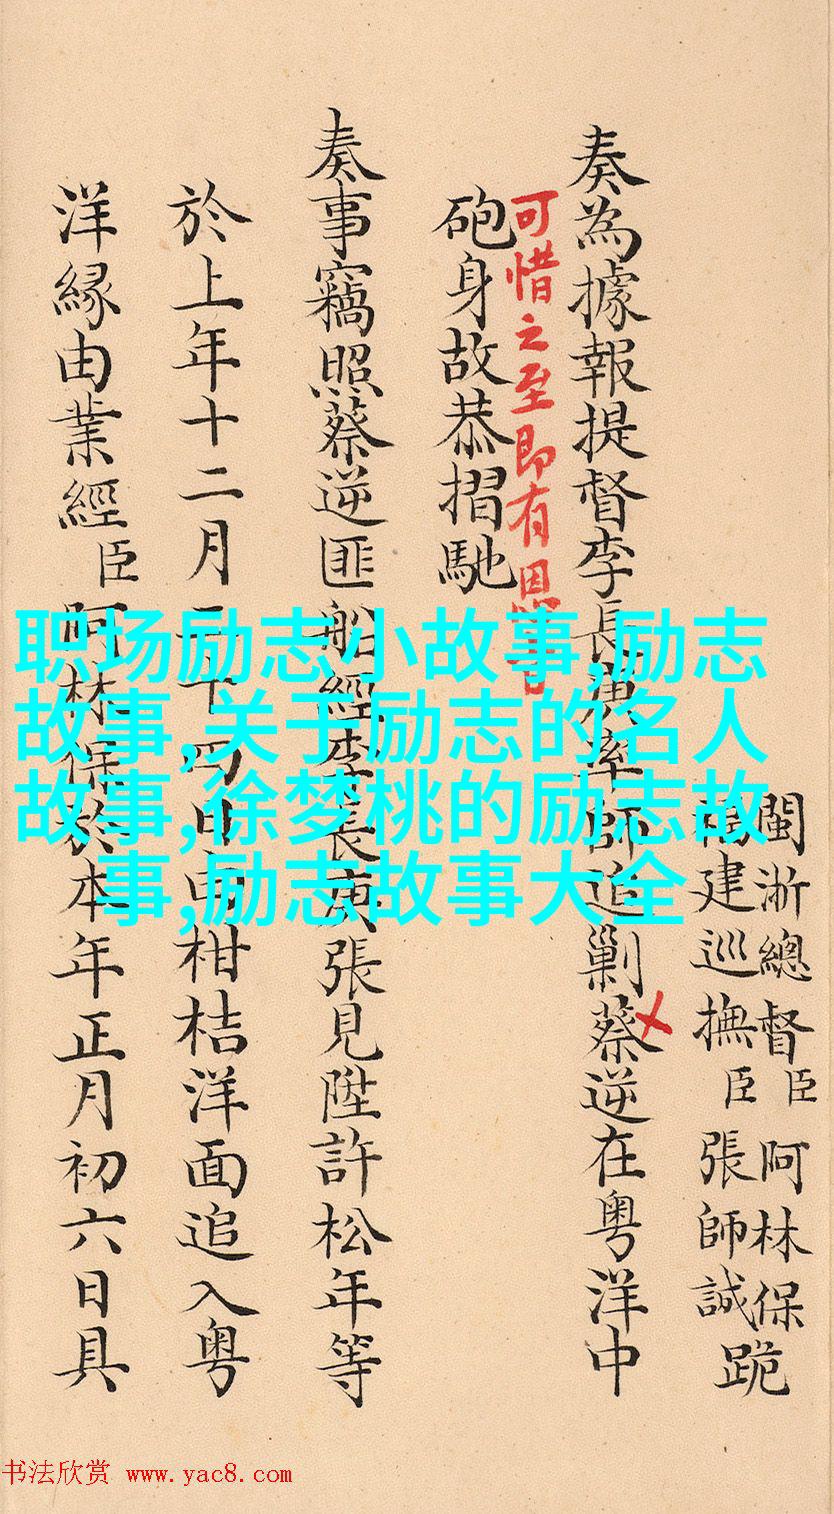 閩浙總督臣阿林保
福建巡撫臣張師誠
跪
奏為據報提督李長庚率師追剿蔡逆在粵洋中
可惜之至即有恩旨
砲身故恭摺馳
奏事竊照蔡逆匪船經李長庚張見陞許松年等
於上年十二月二十四日由柑桔洋面追入粵
洋緣由業經臣阿林保於本年正月初六日具
职场励志小故事,励志
故事,关于励志的名人
故事,徐梦桃的励志故
事,励志故事大全
书法欣赏 www.yac8.com